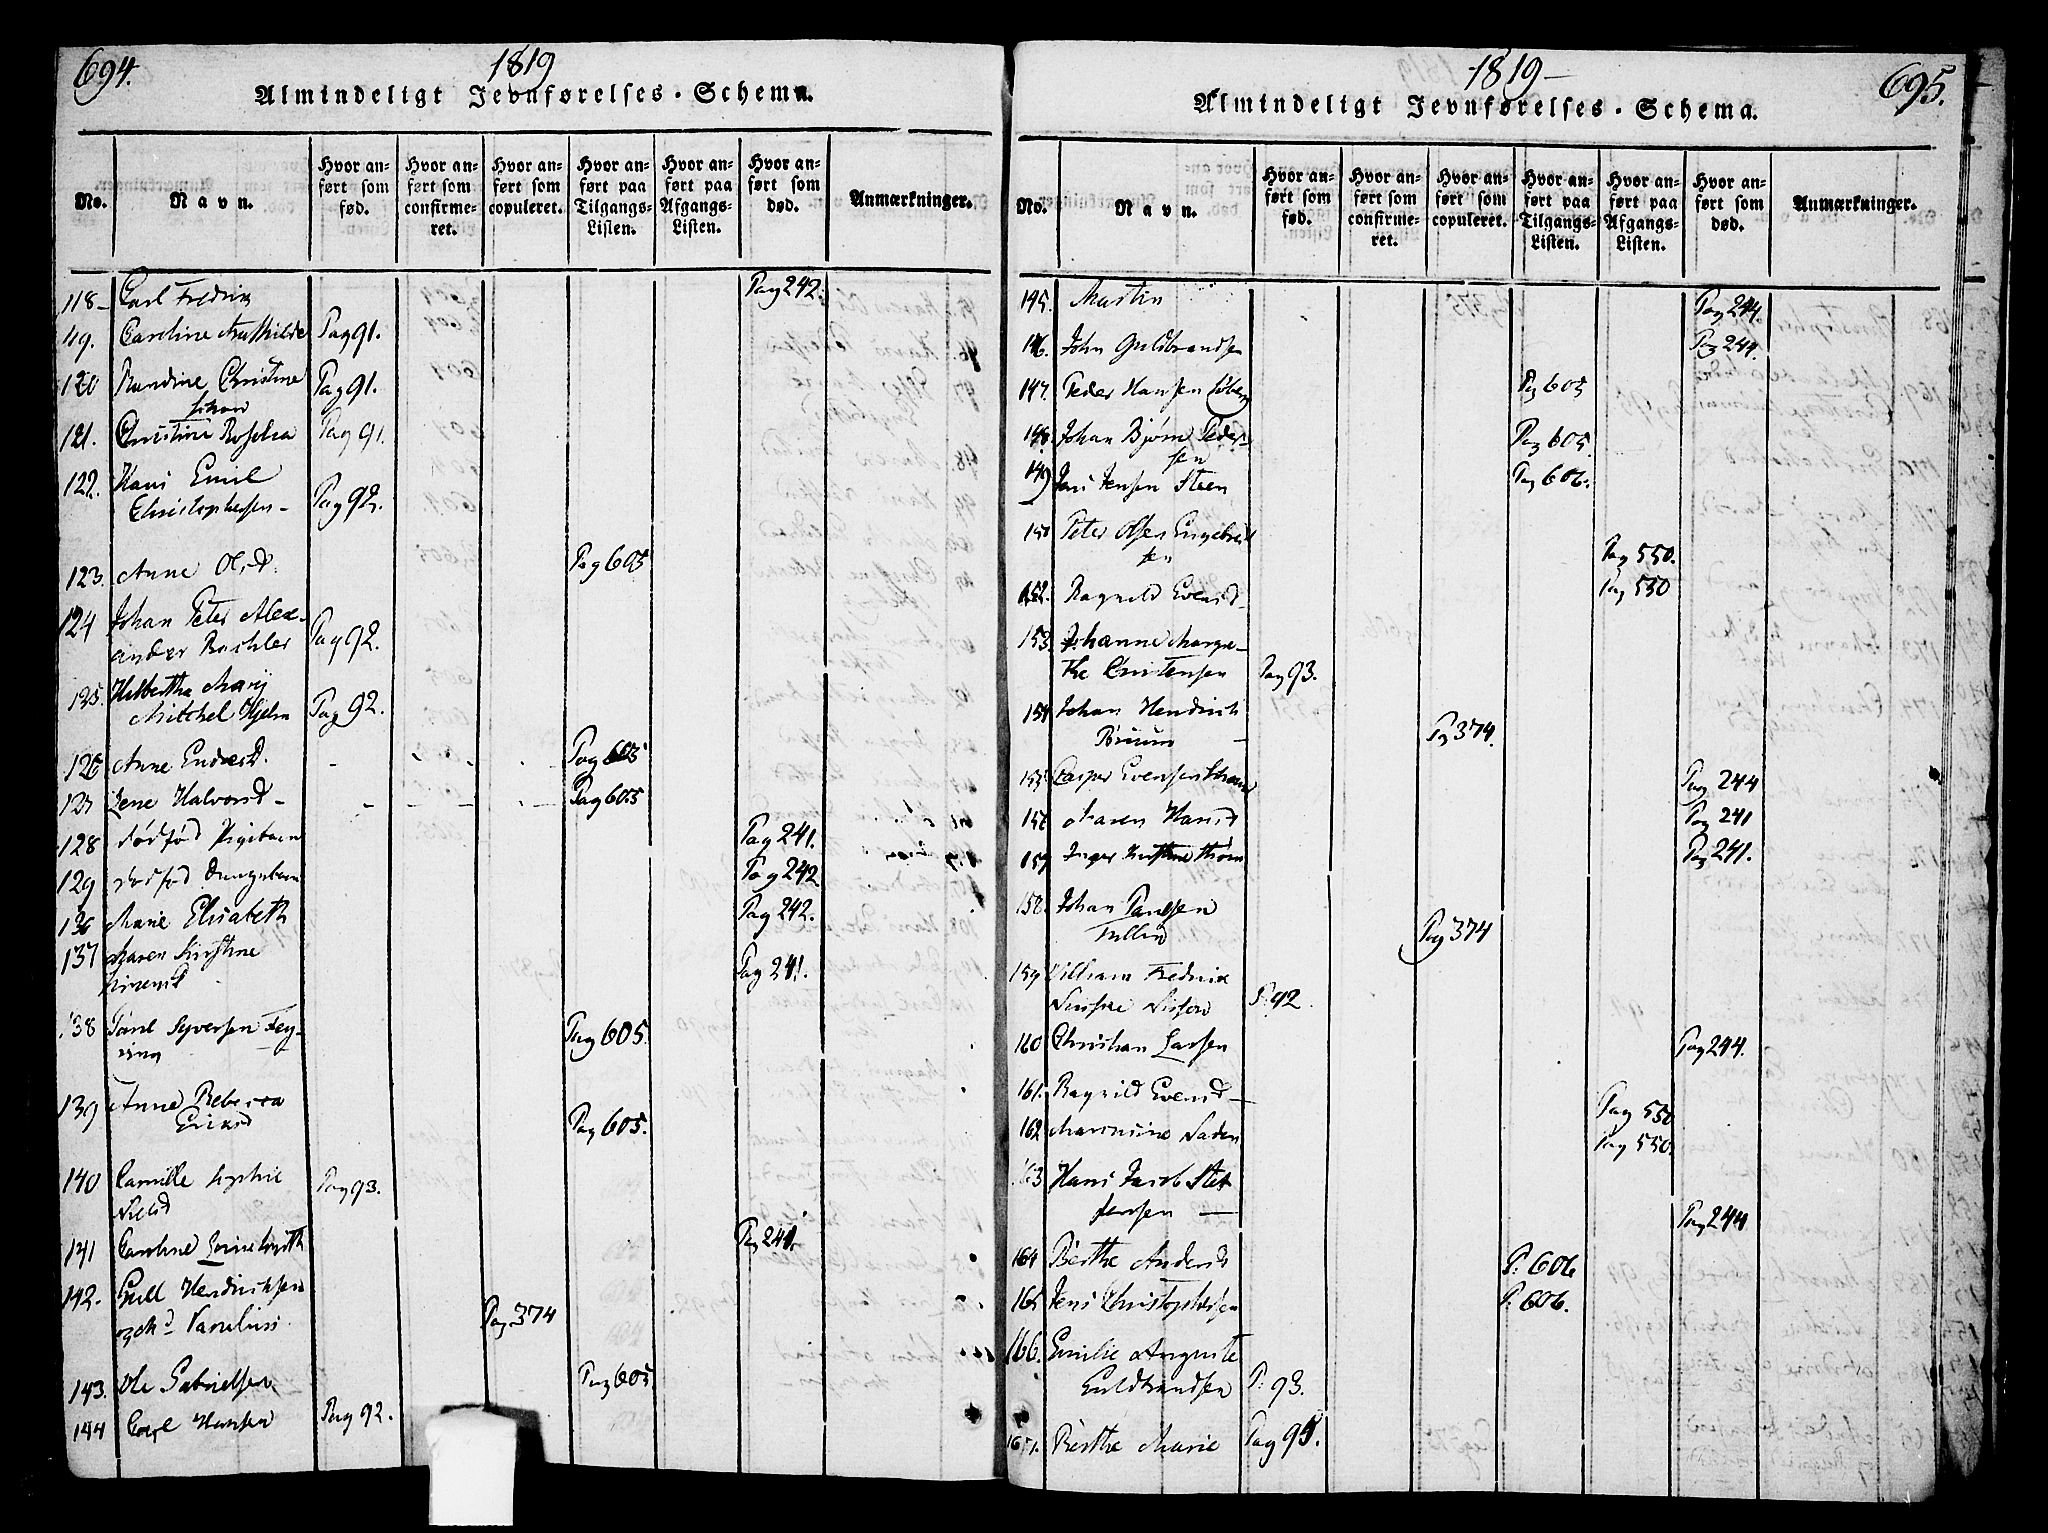 694.
1819
Almindeligt Jevnførelses-Schema.
No.
Navn.
Hvor anført som fød.
Hvor anført som confirmeret.
Hvor anført som copuleret.
Hvor anført paa Tilgangs-Listen.
Hvor anført paa Afgangs-Listen.
Hvor anført som død.
Anmærkninger.
118- Carl Fredrik Pag 242.
119. Caroline Mathilde Pag 91.
120 Christine Pag 91.
121. Christine Pag 91.
122. Hans Emil
Christophersen- Pag 92.
123. Anne Ols.d. Pag 605
124 Johan Peter Alex-
ander Pag 92.
125. Marij
Mitchel Hjelm Pag 92.
126 Anne Enders.D. Pag 605
127 Lene Halvorsd- Pag 605
128 dødfød Pigebarn Pag 241.
129 dødfød Drengebarn Pag 242
136 Marie Elisabeth Pag 242.
137 Maren Kirstine
Pag 241.
138 Syversen Fey-
ring Pag 605.
139 Anne Rebecca
Ericsd Pag 605.
140 Camille Sophie
Nielsd Pag 93.
141 Caroline Pag 241.
142. Hendrichsen
Pag 374
143. Ole Gabrielsen Pag 605
144 Carl Hansen Pag 92.
1819-
695.
Almindeligt Jevnførelses-Schema.
No.
Navn.
Hvor anført som fød.
Hvor anført som confirmeret.
Hvor anført som copuleret.
Hvor anført paa Tilgangs-Listen.
Hvor anført paa Afgangs-Listen.
Hvor anført som død.
Anmærkninger.
145. Martin Pag 244.
146. John Guldbrandsen Pag 244.
147. Peder Hansen Pag 605
148. Johan Bjørn Peder-
sen Pag 605.
149 Jens Jensen Steen Pag 606.
150 Peter Olsen Engebret
sen Pag 550.
152. Ragnild Evensd Pag 550
153. Johanne Margre-
the Christensen Pag 93.
154 Johan Hendrich
Pag 374.
155 Casper Evensen Pag 244
156 Maren Hansd Pag 241
157 Inger Kirstine Pag 241.
158. Johan Paulsen
Pag 374
159 William Fredrik
P. 92.
160 Christian Larsen Pag 244.
161. Ragnild Evensd- Pag 550
162 Pag 550.
163 Hans Jacob
Pag 244
164 Berthe Andersd P: 606
165 Jens Christophersen P: 606.
166. Emilie Auguste
Guldbrandsen P: 93.
167. Berthe Marie Pag 95.